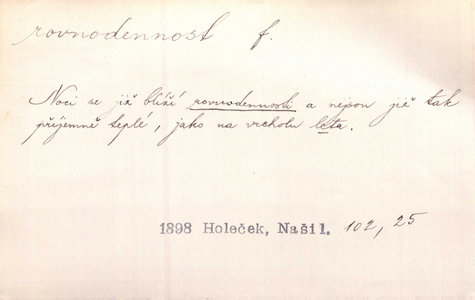 rovnodennost f.
Noci se již blíží rovnodennosti a nejsou již tak
příjemně teplé, jako na vrcholu léta.
1898 Holeček, Naši 1. 102, 25